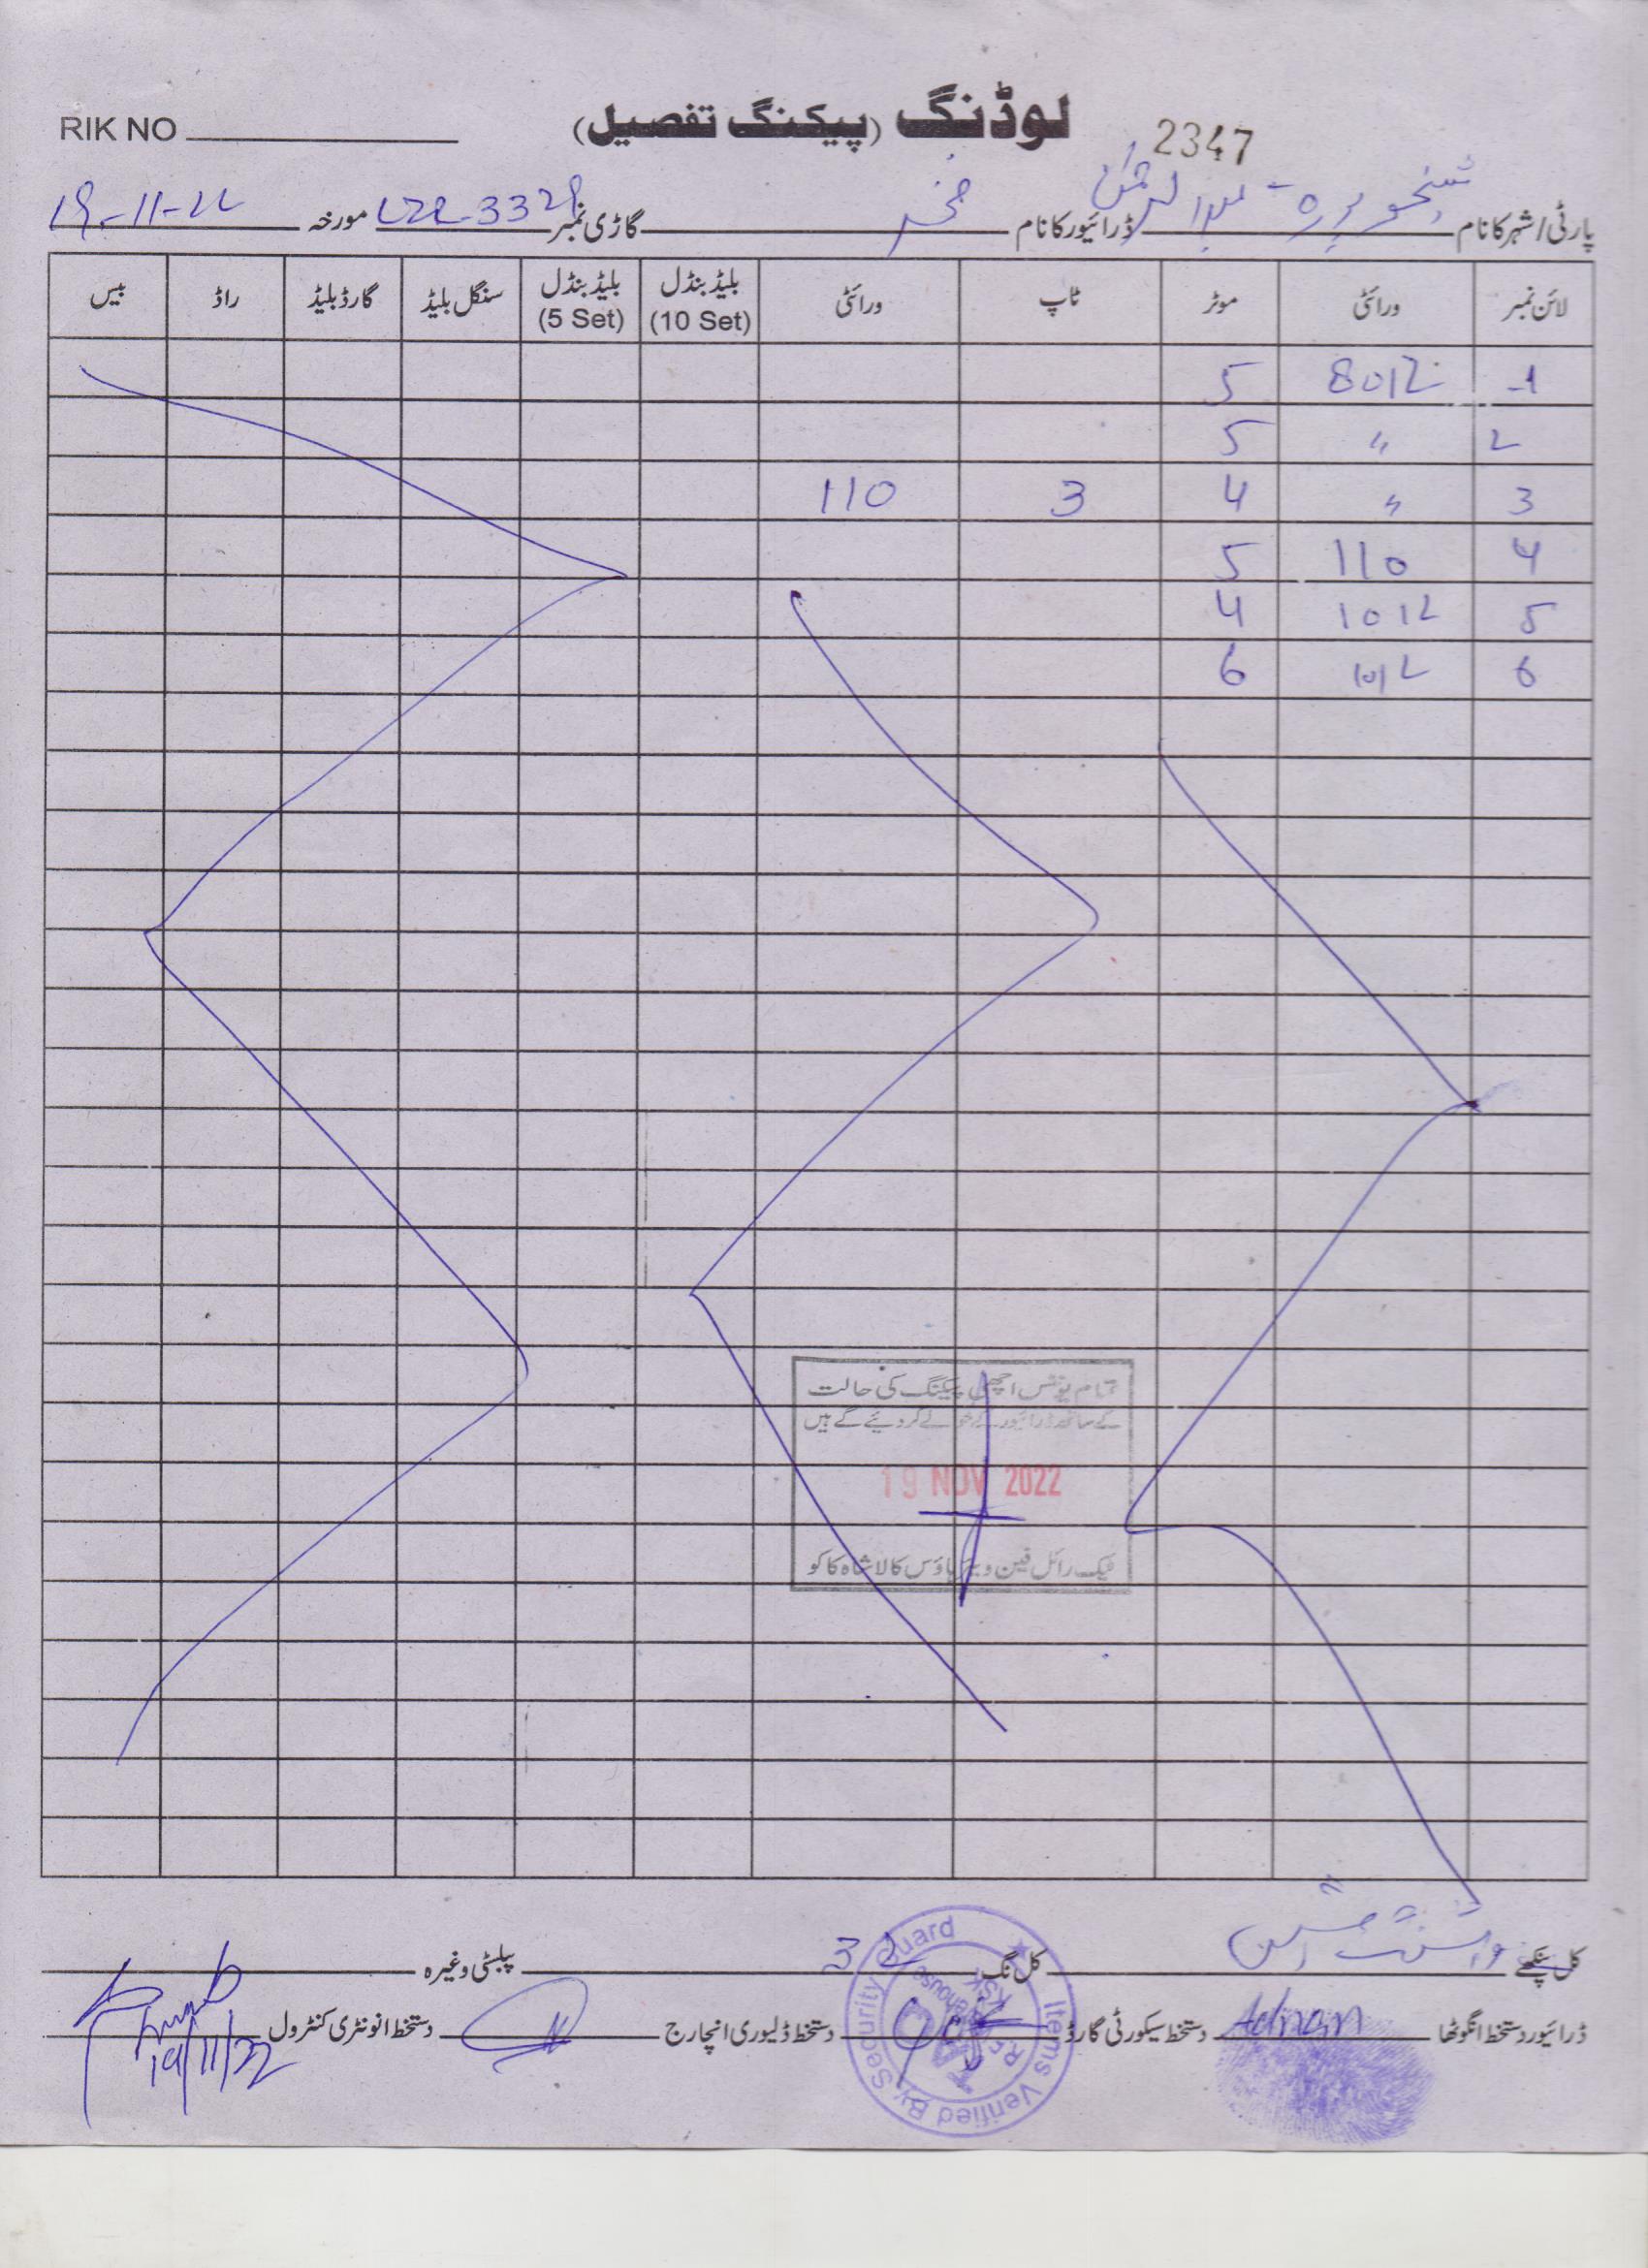 RIK NO
لوڈنگ (پیکنگ تفصیل)
2347
پارٹی/شہر کا نام شیخوپورہ - عبدالرحمٰن ڈرائیور کا نام گاڑی نمبر مورخہ 19-11-22
لائن نمبر ورائٹی موٹر ٹاپ ورائٹی بلیڈ بنڈل (10 Set) بلیڈ بنڈل (5 Set) سنگل بلیڈ گارڈ بلیڈ راڈ بیس
1 8012 5
2 〃 5
3 〃 4 3 110
4 110 5
5 1012 4
6 1012 6
تمام یونٹس اچھی پیکنگ کی حالت
کے ساتھ ڈرائیور کے حوالے کر دئیے گے ہیں
19 NOV 2022
ٹیک رائل فین ویئر ہاؤس کالا شاہ کاکو
کل پنکھے کل نگ 32 پبلسٹی وغیرہ
ڈرائیور دستخط انگوٹھا Adnan دستخط سیکورٹی گارڈ دستخط ڈلیوری انچارج دستخط انونٹری کنٹرول
19/11/22
Items Verified By Security Guard
KSK